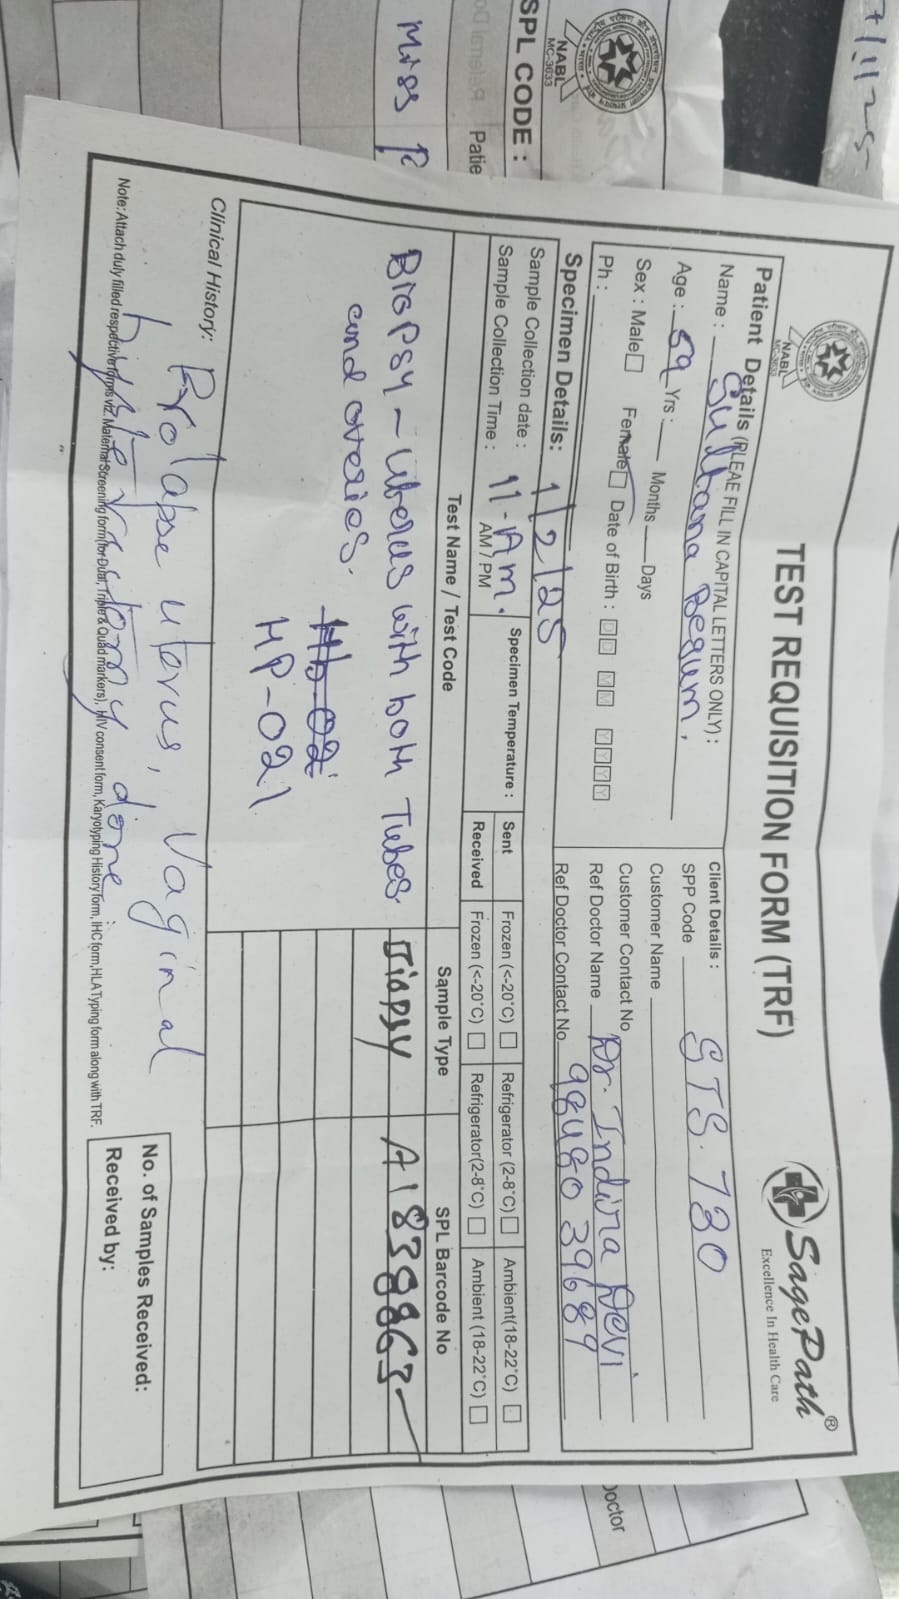 7/1/25
SPL CODE :
NABL
MC-3633
Patie
Miss
TEST REQUISITION FORM (TRF)
SagePath®
Excellence In Health Care
NABL
Patient Details (PLEAE FILL IN CAPITAL LETTERS ONLY) :
Name : Sultana Begum.
Age : 59 Yrs : Months Days
Sex : Male Female Date of Birth : DD MM YYYY
Ph :
Client Details :
SPP Code STS. 720
Customer Name
Customer Contact No
Ref Doctor Name Dr. Indira Devi
Ref Doctor Contact No 9848039689
Specimen Details:
Sample Collection date : 1/2/25
Sample Collection Time : 11-AM. AM / PM
Specimen Temperature :
Sent Frozen (<-20°C) Refrigerator (2-8°C) Ambient(18-22°C)
Received Frozen (<-20°C) Refrigerator(2-8°C) Ambient (18-22°C)
Test Name / Test Code Sample Type SPL Barcode No
Biopsy - Uterus with both Tubes Biopsy A1838863
and overies.
Hb-02
HP-021
Clinical History: Prolapse uterus, Vaginal
hysterectomy done
Note: Attach duly filled respective forms viz. Maternal Screening form (for Dual, Triple & Quad markers), HIV consent form, Karyotyping History form, IHC form, HLA Typing form along with TRF.
No. of Samples Received:
Received by:
Doctor